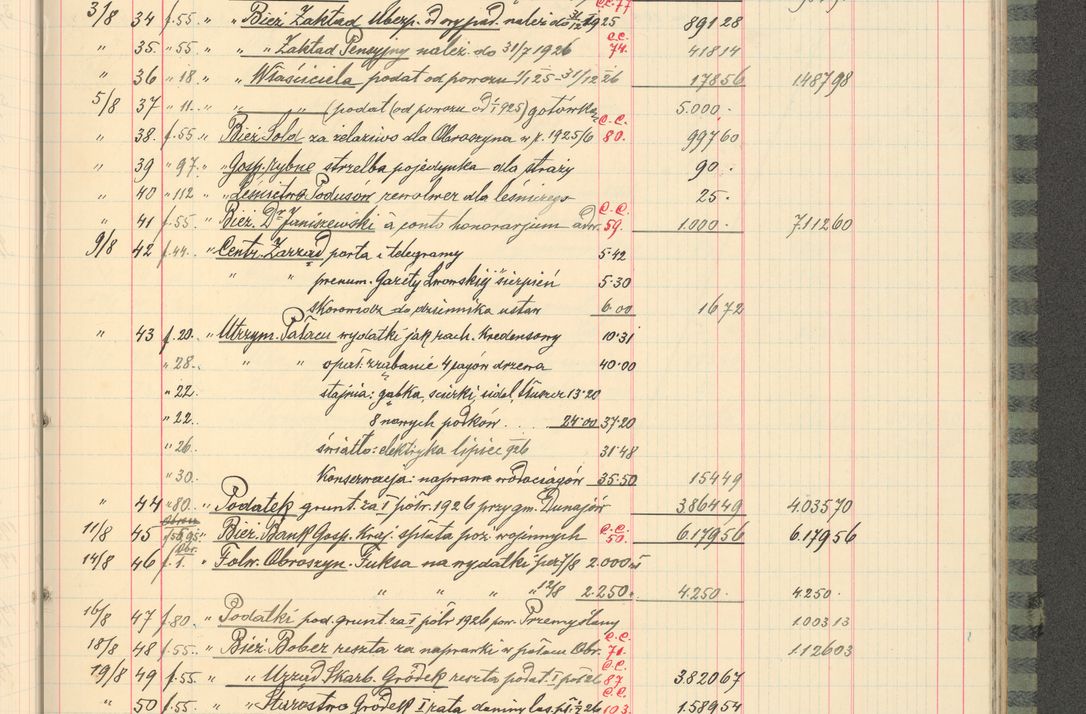 3/8 34 f.55 " " Bież. Zakład Ubezp. od wypad. należ. do 31/12 1925 c.c. 77 891 28
" 35. " 55. " " " Zakład Pensyjny należ. do 31/7 1926 c.c. 74. 418 14
" 36 " 18. " " Właściciela podat od powozu 1/I 25 - 31/12 26 178 56 1.487 98
5/8 37 " 11. " " " (podat (od powozu od 1/I 925) gotówką 5.000 .
" 38. f.55 " Bież. Sold za żelaziwo dla Obroszyna w r. 1925/6 c.c. 80. 997 60
" 39 " 97. " Gosp. rybne strzelba pojedynka dla straży 90 .
" 40 " 112 " Leśnictwo Podusów rewolwer dla leśniczego 25 .
" 41 f.55. " Bież. Dr Janiszewski à conto honorarjum adw. c.c. 59. 1.000 . 7.112 60
9/8 42 f.44. " Centr. Zarząd porta i telegramy 5.42
" " prenum. Gazety Lwowskiej sierpień 5.30
skorowidz do dziennika ustaw 6.00 16 72
" 43 f.20. " Utrzym. Pałacu wydatki jak rach. Kredensowy 10.31
" 28. " " opał: rżąbanie 4 sagów drzewa 40.00
" 22. stajnia: gąbka, ścierki, sidel, tłuszcz 13.20
" 22. 8 nowych podków . . . 24.00 37.20
" 26. światło: elektryka lipiec 926 31.48
" 30. Konserwacja: naprawa wodociągów 35.50 154 49
" 44 " 80. " Podatek grunt. za I półr. 1926 przy gm. Dunajów 3.864 49 4.035 70
11/8 45 f.55 95 " Bież. Bank Gosp. Kraj. spłata poż. wojennych c.c. 50. 6.179 56 6.179 56
Obr.
14/8 46 f.1. " Folw. Obroszyn. Fuksa na wydatki per 7/8 2.000 .
" " " " 12/8 2.250 . 4.250 . 4.250 .
16/8 47 f.80. " Podatki pod. grunt. za I półr 1926 pow. Przemyślany 1.003 13
18/8 48 f.55. " Bież. Bober reszta za naprawki w pałacu Obr. c.c. 71. 1.126 03
19/8 49 f.55 " " Urząd Skarb. Gródek reszta podat. I półr 26 c.c. 87 3.820 67
" 50 f.55. " " Starostwo Gródek I rata daniny las. pł. 1/2 26 c.c. 103. 1.589 54